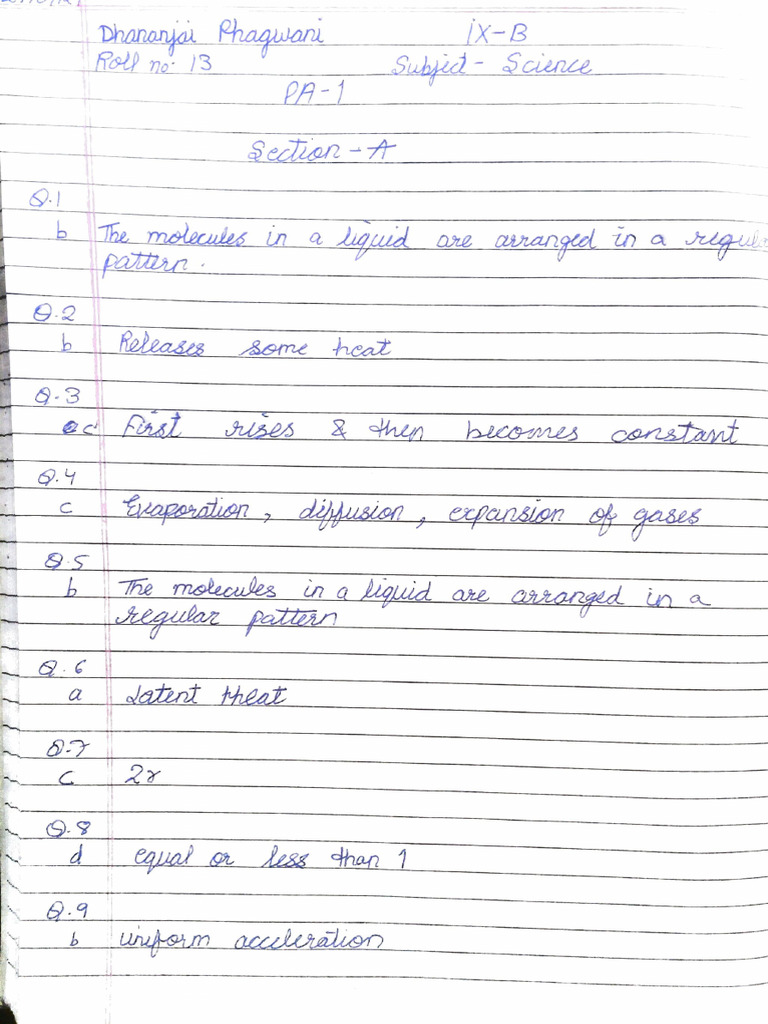 Dhananjai Phagwani IX-B
Roll no. 13 Subject - Science
PA-1
Section - A
Q.1
b The molecules in a liquid are arranged in a regular
pattern.
Q.2
b Releases some heat
Q.3
c First rises & then becomes constant
Q.4
c Evaporation, diffusion, expansion of gases
Q.5
b The molecules in a liquid are arranged in a
regular pattern
Q.6
a Latent Heat
Q.7
c 2r
Q.8
d equal or less than 1
Q.9
b uniform acceleration